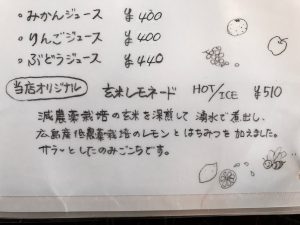 ・みかんジュース ¥400
・りんごジュース ¥400
・ぶどうジュース ¥440
当店オリジナル 玄米レモネード HOT/ICE ¥510
減農薬栽培の玄米を深煎して湧水で煮出し、
広島産低農薬栽培のレモンとはちみつを加えました。
サラッとしたのみごこちです。